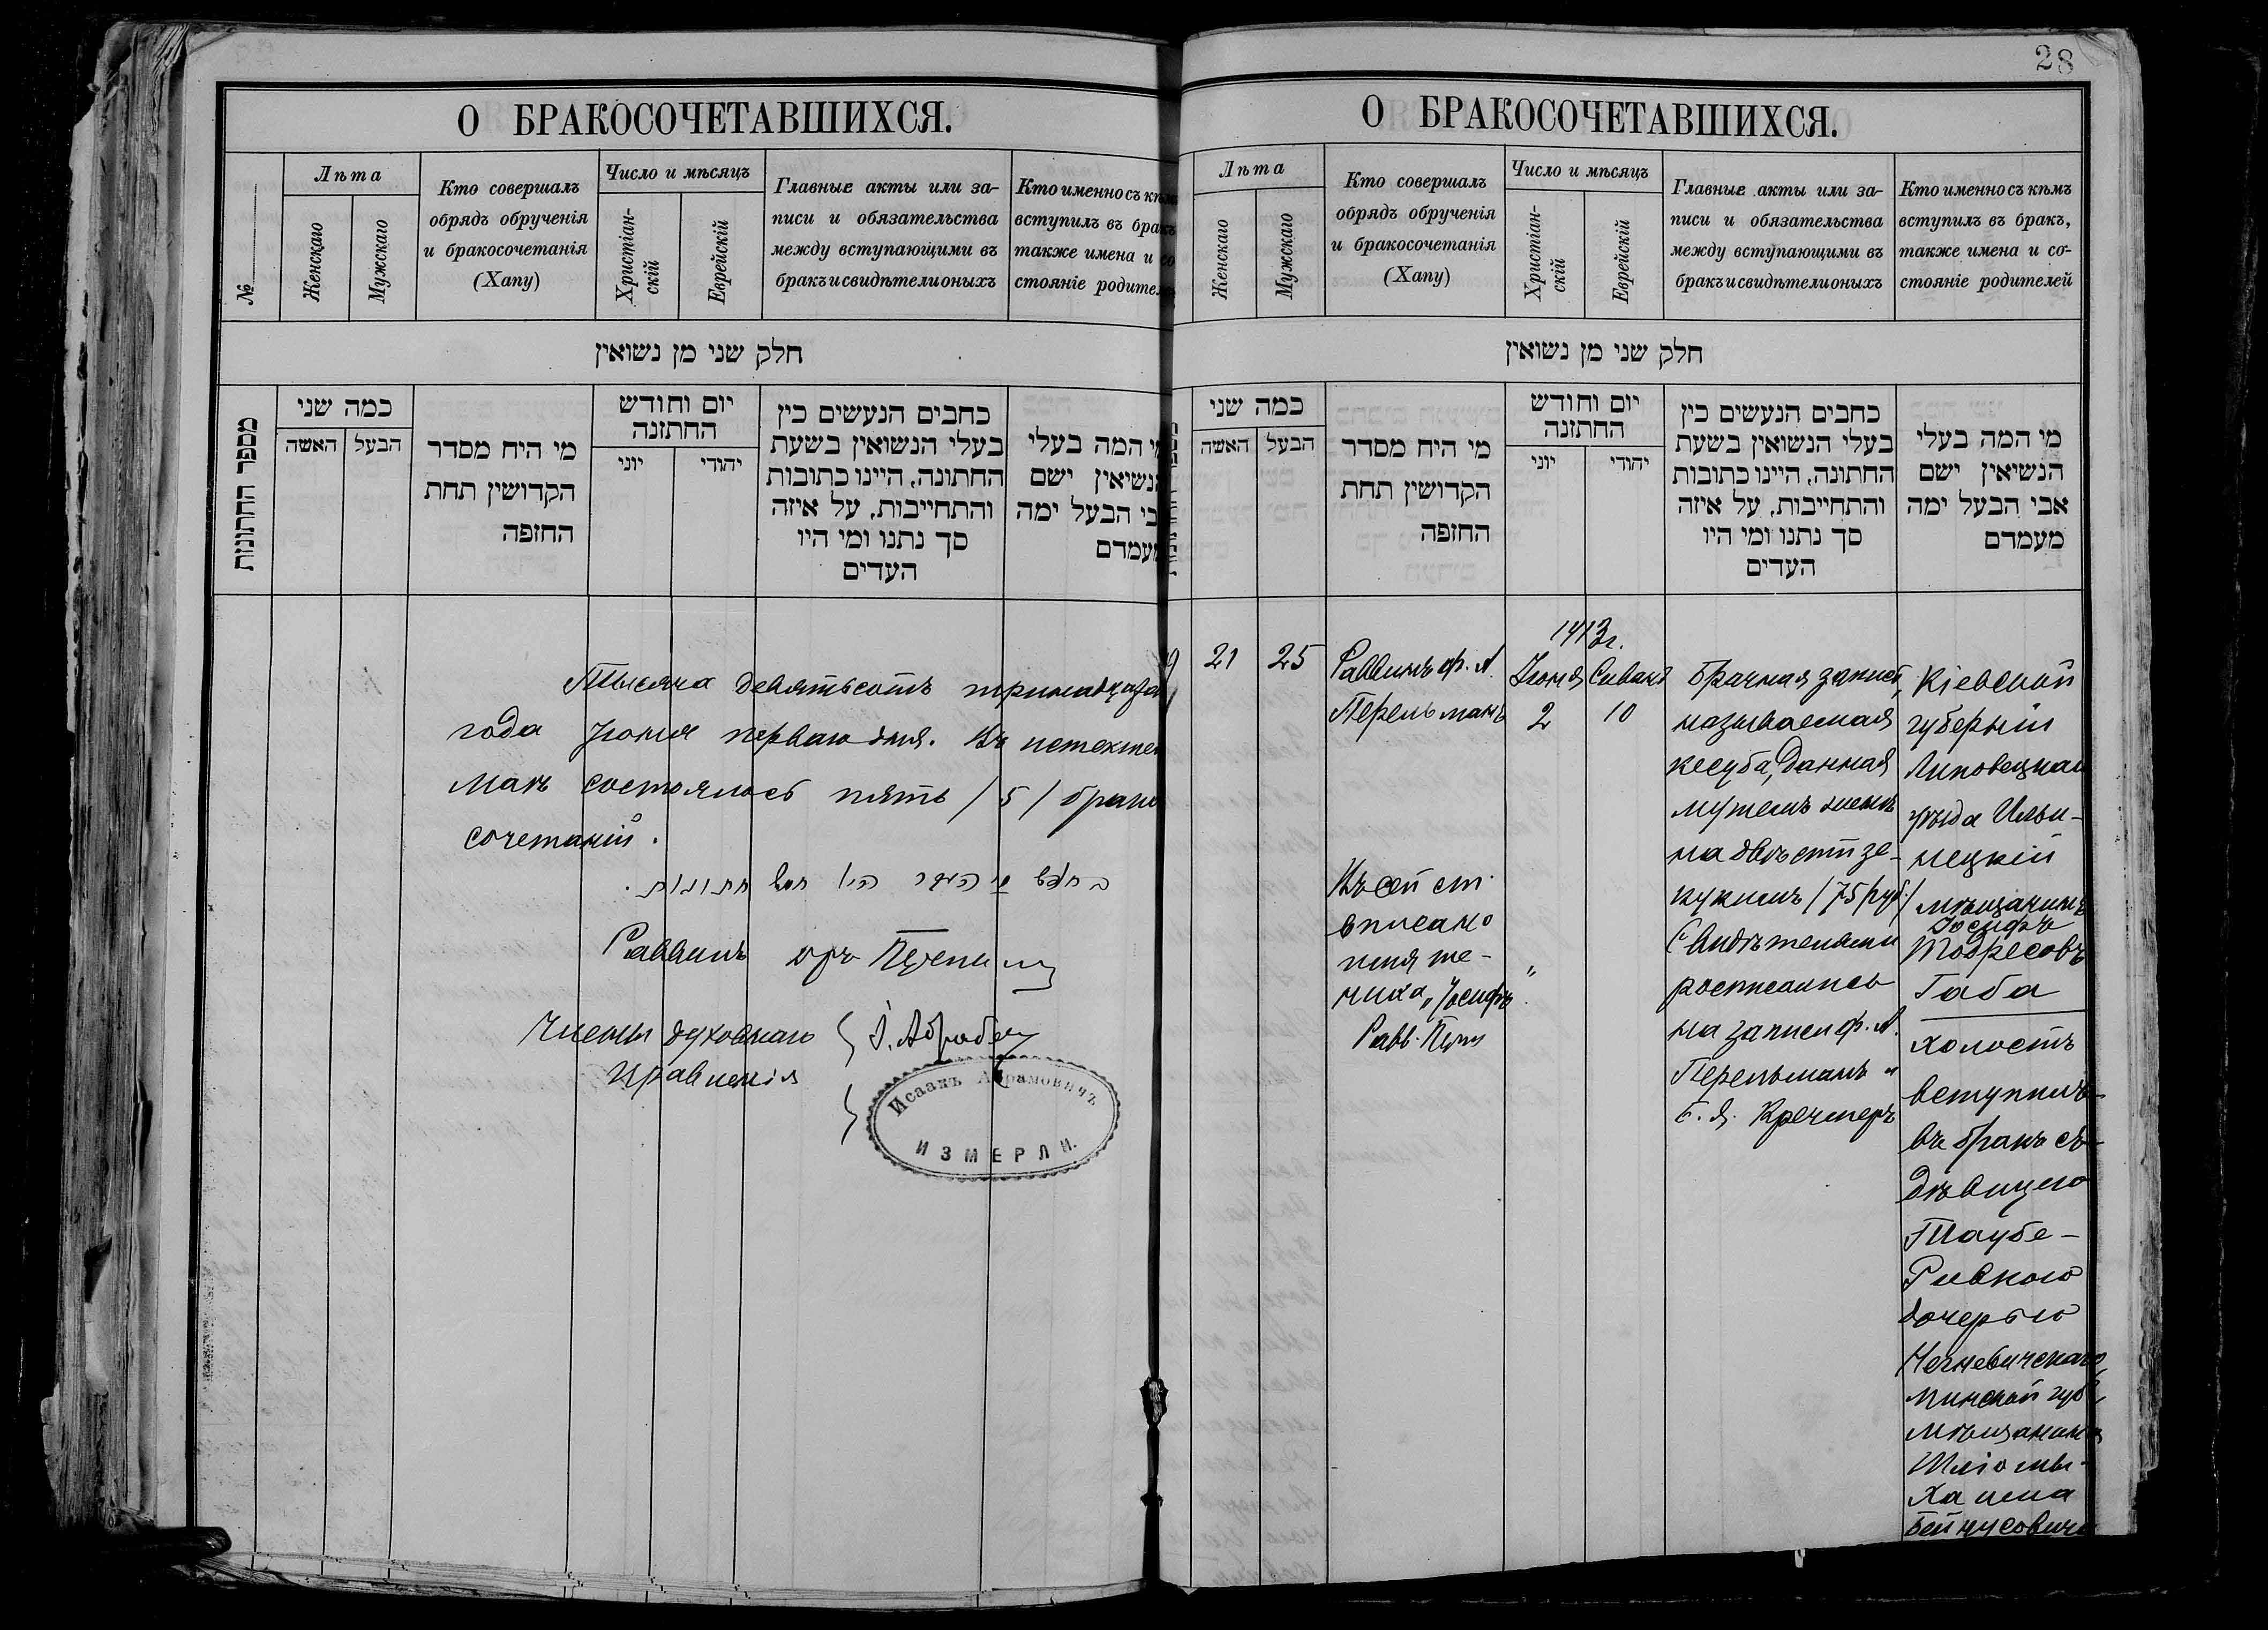 О БРАКОСОЧЕТАВШИХСЯ.
№
Лѣта
Женскаго
Мужскаго
Кто совершалъ
обрядъ обрученія
и бракосочетанія
(Хапу)
Число и мѣсяцъ
Христіан-
скій
Еврейскій
Главные акты или за-
писи и обязательства
между вступающими въ
бракъ и свидѣтели оныхъ
Кто именно съ кѣмъ
вступилъ въ бракъ
также имена и со
стояніе родителей
חלק שני מן נשואין
מספר החתונות
כמה שני
האשה
הבעל
מי היח מסדר
הקדושין תחת
החזפה
יום וחודש
החתזנה
יוני
יהודי
כחבים הנעשים כין
בעלי הנשואין בשעת
החתונה, היינו כתובות
והתחייבות, על איזה
סך נתנו ומי היו
העדים
מי המה בעלי
הנשיאין ישם
אבי הבעל ימה
מעמדם
Тысяча девятьсотъ тринадцата
года Іюня перваго дня. Въ истекшем
Маѣ состоялось пять /5/ брако
сочетаній.
חתונות.
Раввинъ
Члены духовнаго
правленія
Исаакъ Абрамовичъ
ИЗМЕРЛИ.
28
О БРАКОСОЧЕТАВШИХСЯ.
Лѣта
Женскаго
Мужскаго
Кто совершалъ
обрядъ обрученія
и бракосочетанія
(Хапу)
Число и мѣсяцъ
Христіан-
скій
Еврейскій
Главные акты или за-
писи и обязательства
между вступающими въ
бракъ и свидѣтели оныхъ
Кто именно съ кѣмъ
вступилъ въ бракъ,
также имена и со-
стояніе родителей
חלק שני מן נשואין
כמה שני
האשה
הבעל
מי היח מסדר
הקדושין תחת
החזפה
יום וחודש
החתזנה
יוני
יהודי
כחבים הנעשים כין
בעלי הנשואין בשעת
החתונה, היינו כתובות
והתחייבות, על איזה
סך נתנו ומי היו
העדים
מי המה בעלי
הנשיאין ישם
אבי הבעל ימה
מעמדם
21
25
Раввинъ ф. А.
Перельманъ
Къ сей ст.
вписано
имя же-
ниха „Іосифъ“.
Равв.
1913г.
Іюня
2
Сивана
10
Брачная запись,
называемая
кесуба, данная
мужемъ женѣ
на двѣсти зе-
кукимъ /75 руб./
Свидѣтелями
росписались
на записи ф. А.
Перельманъ и
Кречмеръ
Кіевской
губерніи
Липовецкаго
уѣзда Ильи-
нецкій
мѣщанинъ
Іосифъ
Тодресовъ
Габа
холостъ
вступилъ
въ бракъ съ
дѣвицею
Таубе-
Ривкою
дочерью
Минской губ.
мѣщанина
Шліомы-
Хаима
Бейнусовича